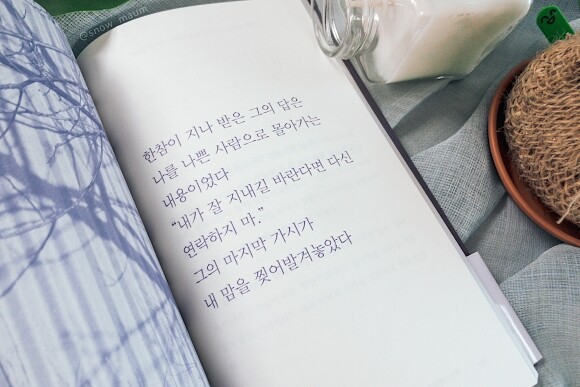 @snow_maum
한참이 지나 받은 그의 답은
나를 나쁜 사람으로 몰아가는
내용이었다
"내가 잘 지내길 바란다면 다신
연락하지 마."
그의 마지막 가시가
내 맘을 찢어발겨놓았다